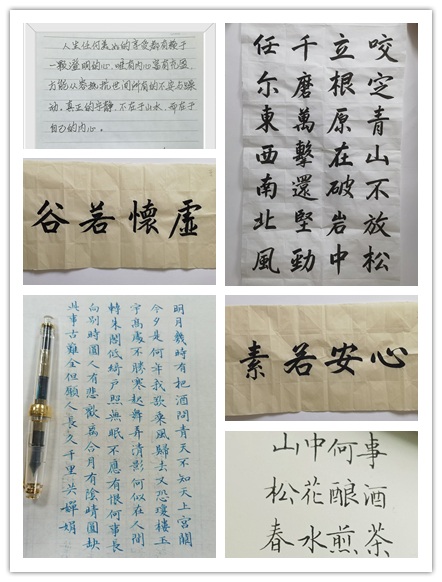 人生任何美好的享受都有赖于
一颗澄明的心，唯有内心富有充盈，
方能从容抵抗世间所有的不安与躁
动，真正的宁静，不在于山水，而在于
自己的内心。
咬定青山不放松
立根原在破岩中
千磨萬擊還堅勁
任尔東西南北風
虛懷若谷
明月幾時有把酒問青天不知天上宮闕
今夕是何年我欲乘風歸去又恐瓊樓玉
宇高處不勝寒起舞弄清影何似在人間
轉朱閣低綺戶照無眠不應有恨何事長
向別時圓人有悲歡離合月有陰晴圓缺
此事古難全但願人長久千里共嬋娟
心安若素
山中何事
松花酿酒
春水煎茶